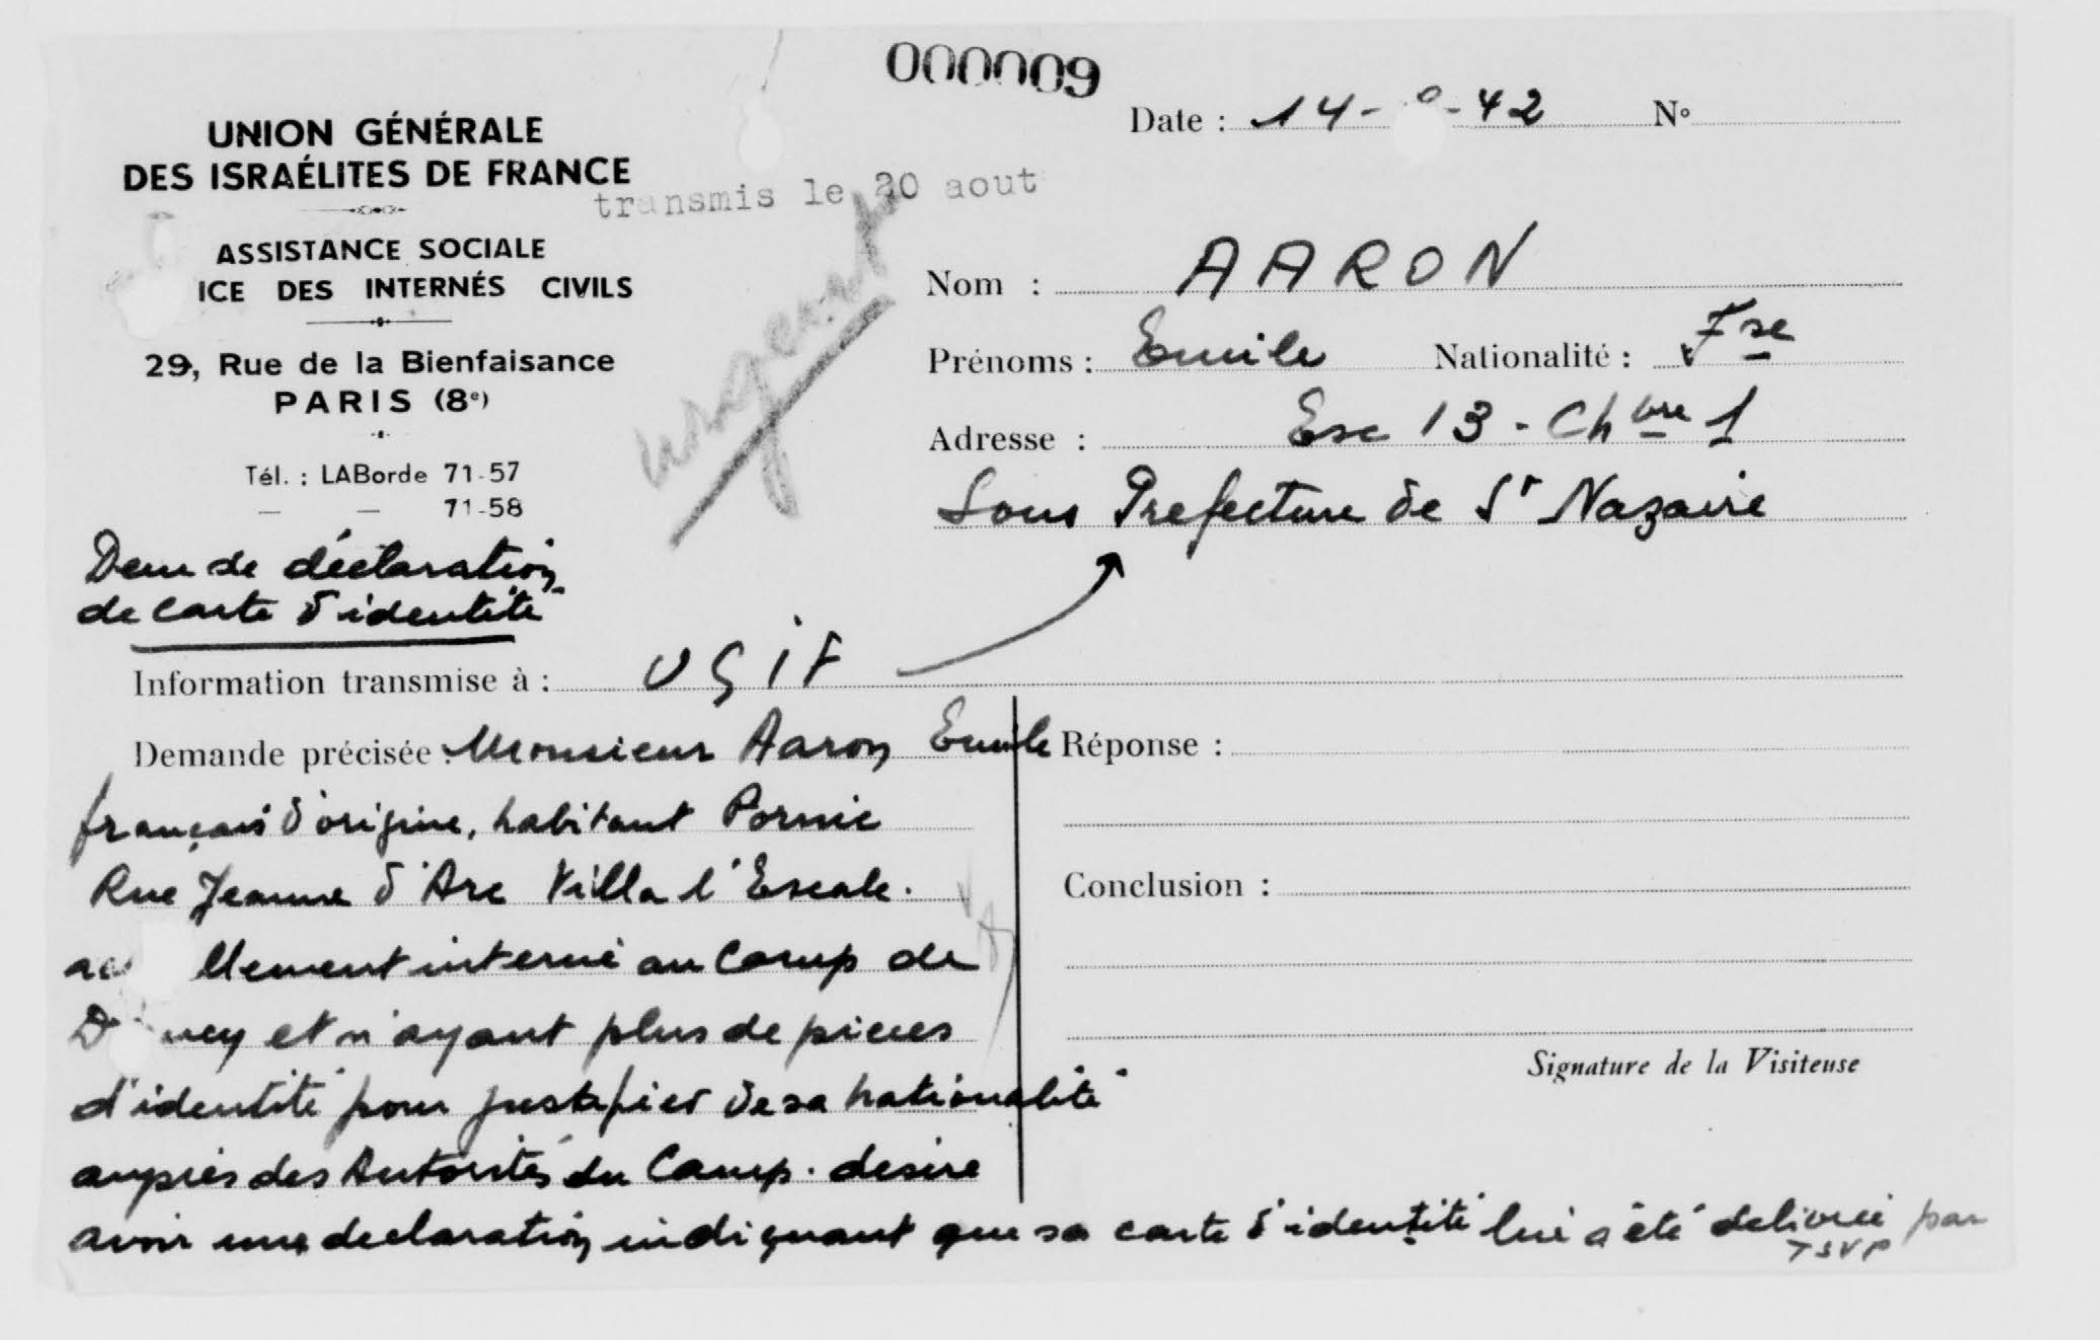 000009
Date : 14- -42 N°
UNION GÉNÉRALE
DES ISRAÉLITES DE FRANCE
transmis le 20 aout
ASSISTANCE SOCIALE
ICE DES INTERNÉS CIVILS
urgent
29, Rue de la Bienfaisance
PARIS (8e)
Tél. : LABorde 71-57
— — 71-58
Nom : AARON
Prénoms : Emile Nationalité : Fse
Adresse : Esc 13 - Chbre 1
Sous Prefecture de St Nazaire
Dem de déclaration
de carte d'identité
Information transmise à : UGIF
Demande précisée : Monsieur Aaron Emile
français d'origine, habitant Pornic
Rue Jeanne d'Arc Villa l'Escale.
llement interné au Camp de
et n'ayant plus de pieces
d'identité pour justifier de sa nationalité
auprès des Autorités du Camp. desire
avoir une declaration indiquant que sa carte d'identité lui a été delivrée par
TSVP
Réponse :
Conclusion :
Signature de la Visiteuse